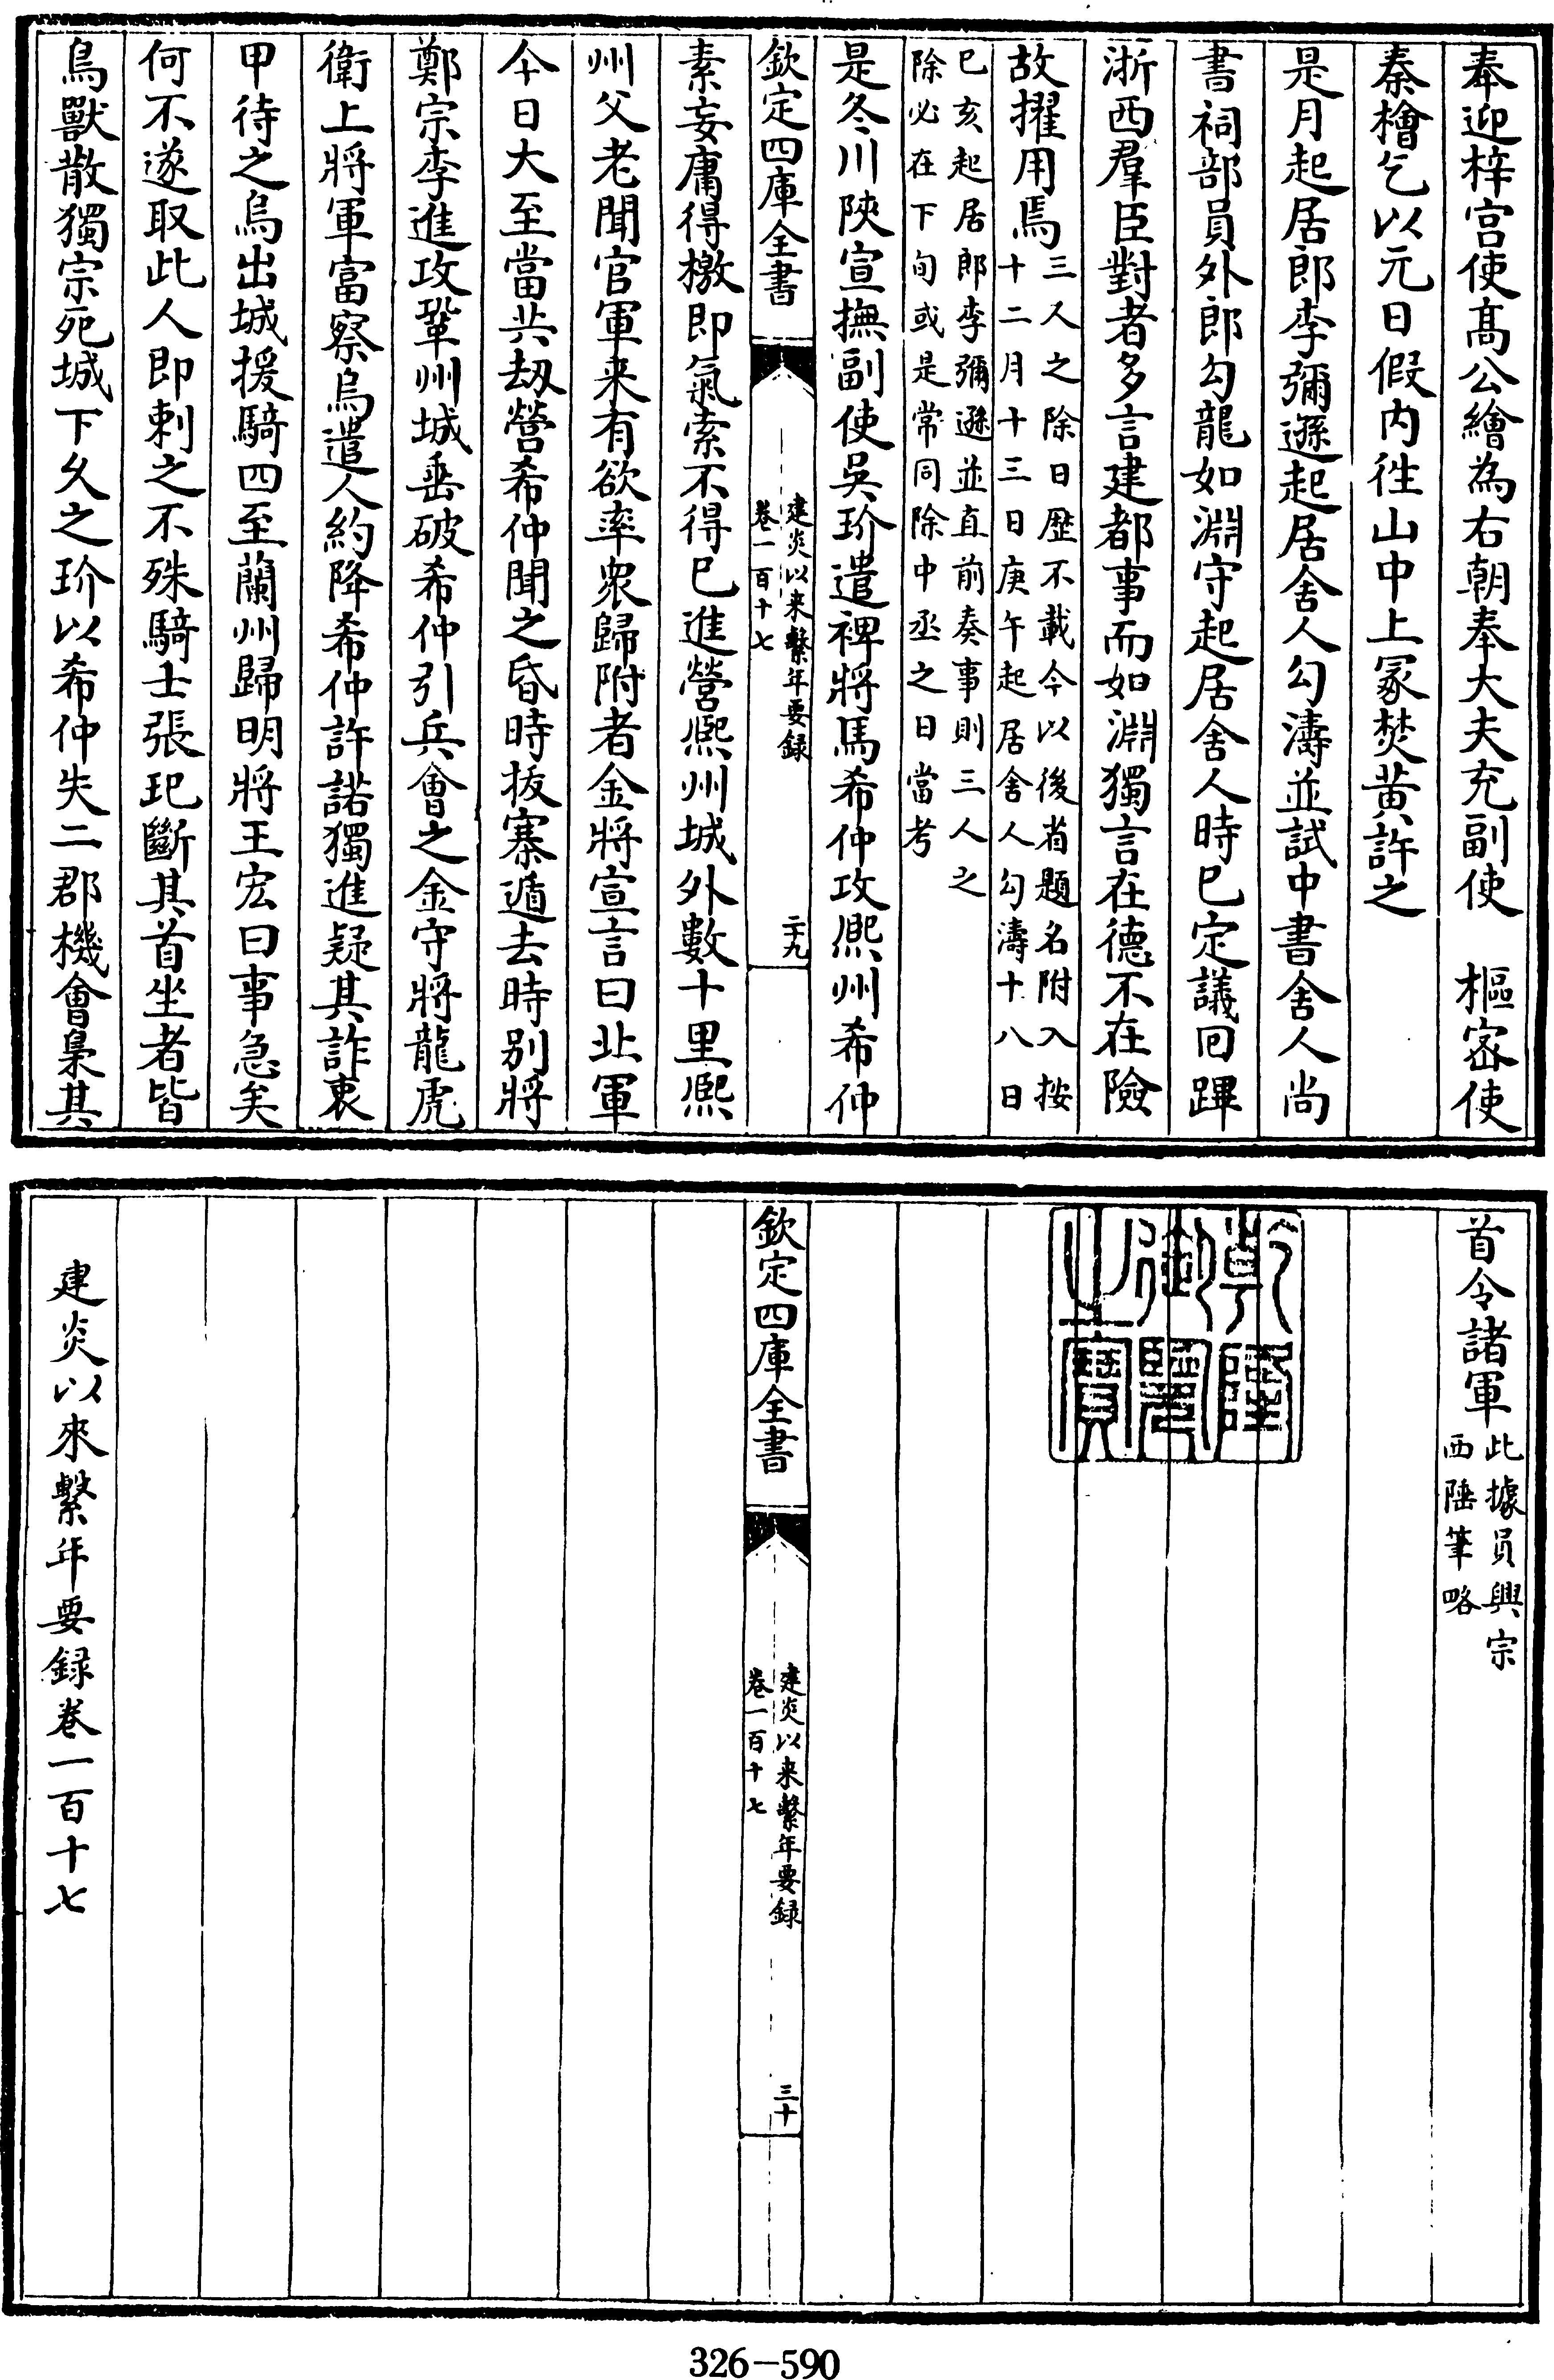 奉迎梓宫使髙公繪為右朝奉大夫充副使　樞宻使
秦檜乞以元日假内徃山中上冡焚黄許之
是月起居郎李彌遜起居舍人勾濤並試中書舍人尚
書祠部員外郎勾龍如淵守起居舍人時已定議回蹕
浙西羣臣對者多言建都事而如淵獨言在徳不在險
故擢用焉三人之除日厯不載今以後省題名附入按
十二月十三日庚午起居舍人勾濤十八日
已亥起居郎李彌遜並直前奏事則三人之
除必在下旬或是常同除中丞之日當考
是冬川陜宣撫副使吳玠遣裨將馬希仲攻熈州希仲
欽定四庫全書
建炎以来繫年要録
卷一百十七
二十九
素妄庸得檄即氣索不得已進營熈州城外數十里熈
州父老聞官軍来有欲率衆歸附者金將宣言曰北軍
今日大至當共刼營希仲聞之昏時抜寨遁去時别將
鄭宗李進攻鞏州城垂破希仲引兵會之金守將龍虎
衛上將軍富察烏遣人約降希仲許諾獨進疑其詐衷
甲待之烏出城援騎四至蘭州歸明將王宏曰事急矣
何不遂取此人即剌之不殊騎士張玘斷其首坐者皆
鳥獸散獨宗死城下久之玠以希仲失二郡機會梟其
首令諸軍此據員興宗
西陲筆略
乾隆
御覽
之寶
欽定四庫全書
建炎以来繫年要録
卷一百十七
三十
建炎以來繫年要録卷一百十七
326-590